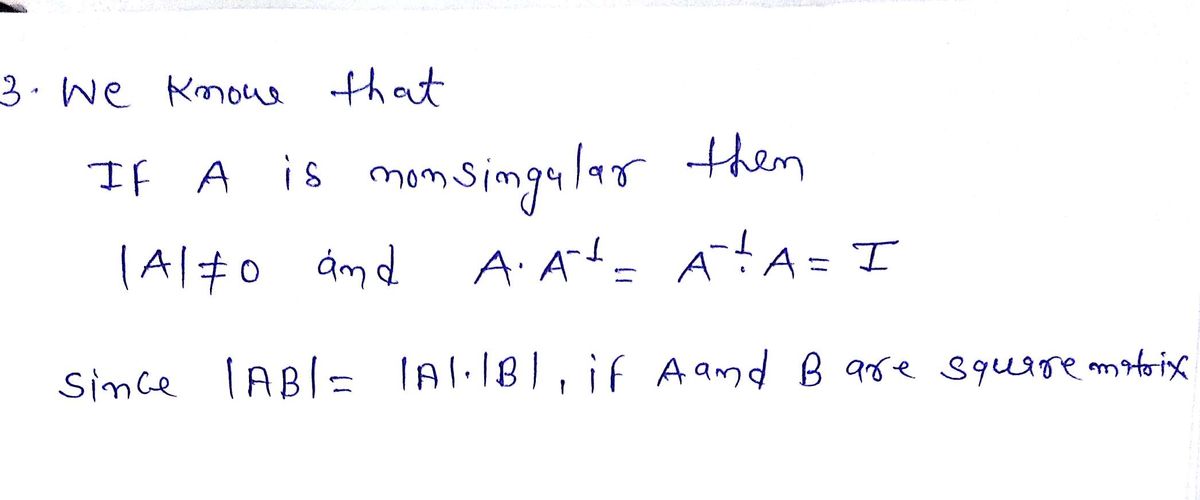 3. We know that
If A is nonsingular then
|A| ≠ 0 and A·A⁻¹ = A⁻¹·A = I
since |AB| = |A|·|B|, if A and B are square matrix